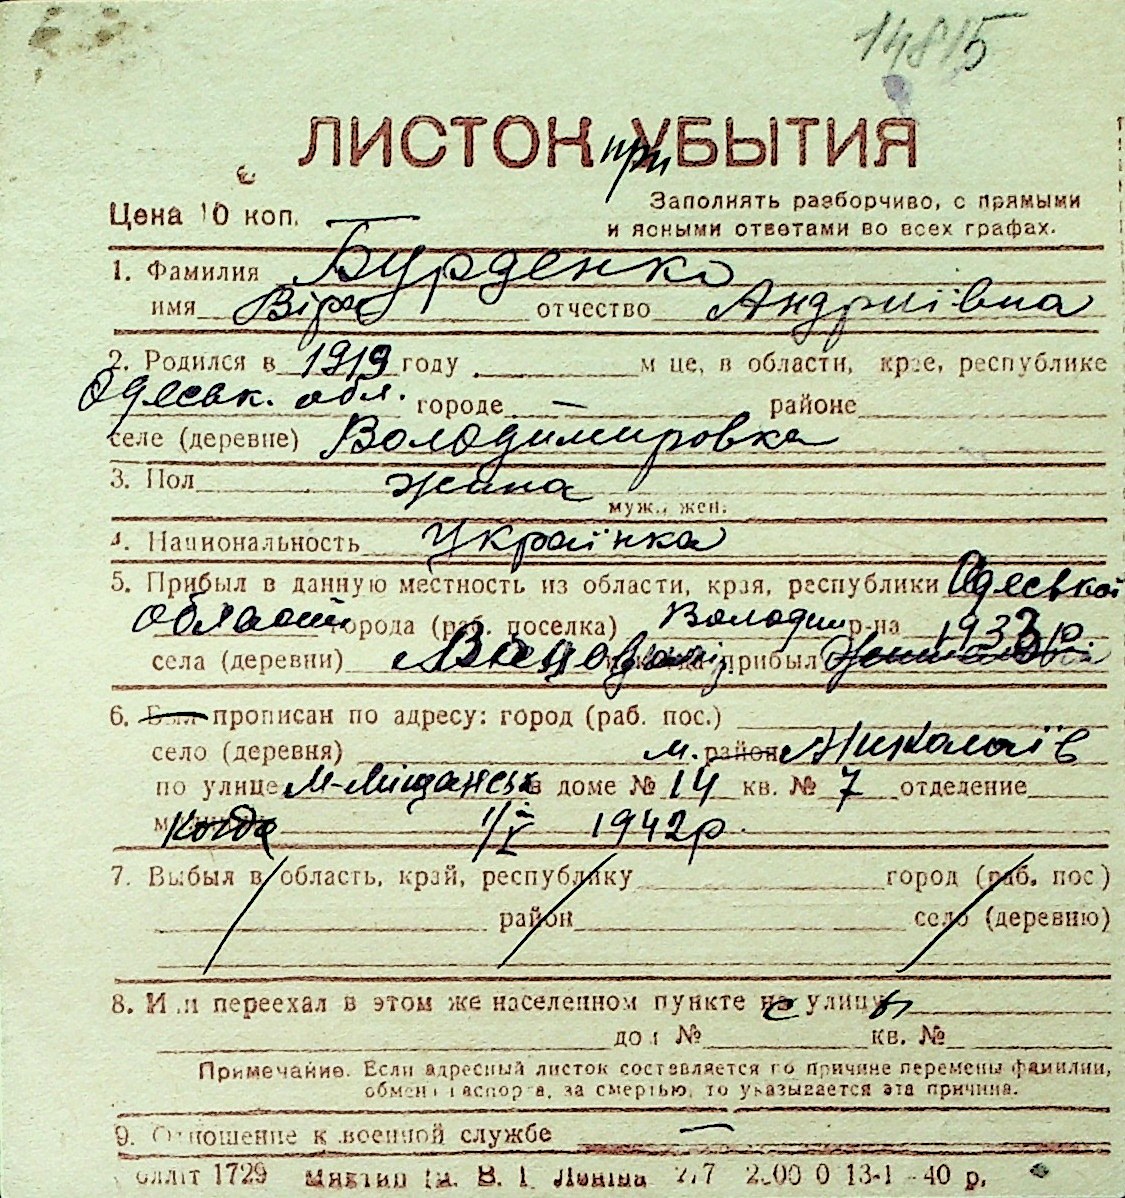 14815
ЛИСТОК при УБЫТИЯ
Цена 10 коп.
Заполнять разборчиво, с прямыми
и ясными ответами во всех графах.
1. Фамилия Бурденко
имя Віра отчество Андриївна
2. Родился в 1919 году м це, в области, крае, республике
Одеськ. обл. городе — районе
селе (деревне) Володимировка
3. Пол жина
муж., жен.
4. Национальность Українка
5. Прибыл в данную местность из области, края, республики Одеської
області города (раб. поселка) Володим р-на 1933 р
села (деревни) прибыл
6. Был прописан по адресу: город (раб. пос.)
село (деревня) м. район Николаїв
по улице М-Міщанськ в доме № 14 кв. № 7 отделение
Когда 1/V 1942 р.
7. Выбыл в область, край, республику город (раб. пос.)
район село (деревню)
8. Или переехал в этом же населенном пункте с улицы
дом № кв. №
Примечание. Если адресный листок составляется по причине перемены фамилии,
обмена паспорта, за смертью, то указывается эта причина.
9. Отношение к военной службе —
блліт 1729 В. І. Леніна 2.00 0 13-1 -40 р.